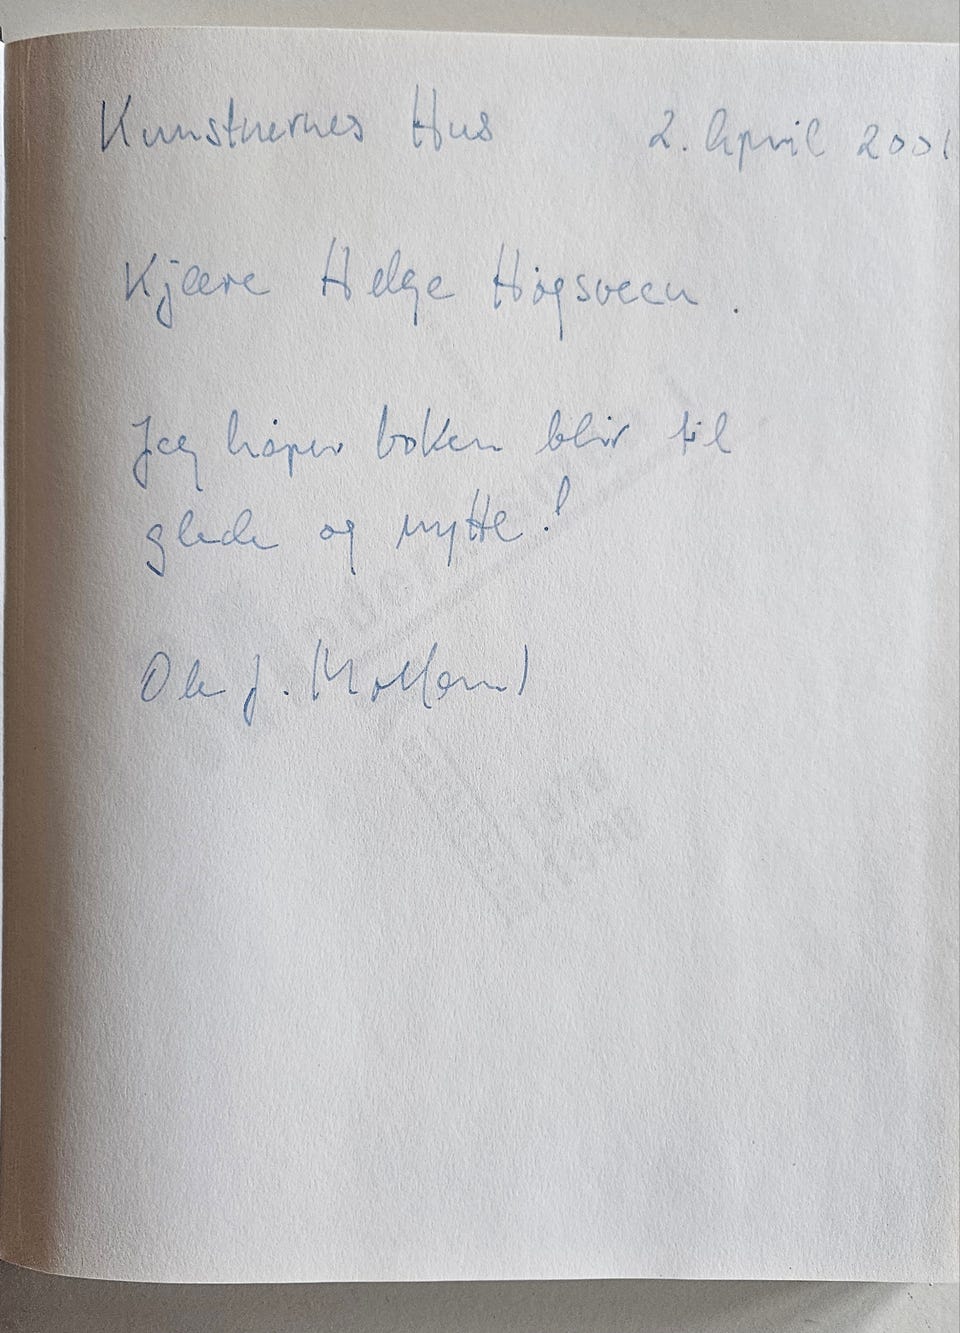 Kunstnernes Hus 2. April 2001
Kjære Helge Høgsveen.
Jeg håper boken blir til
glede og nytte!
Ole J.